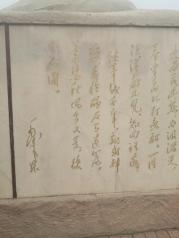 大雨落幽燕白浪滔
天秦皇岛外打鱼船一片
汪洋都不见知向谁边
往事越千年魏武挥鞭
东临碣石有遗篇
萧瑟秋风今又是换
了人间
毛泽东